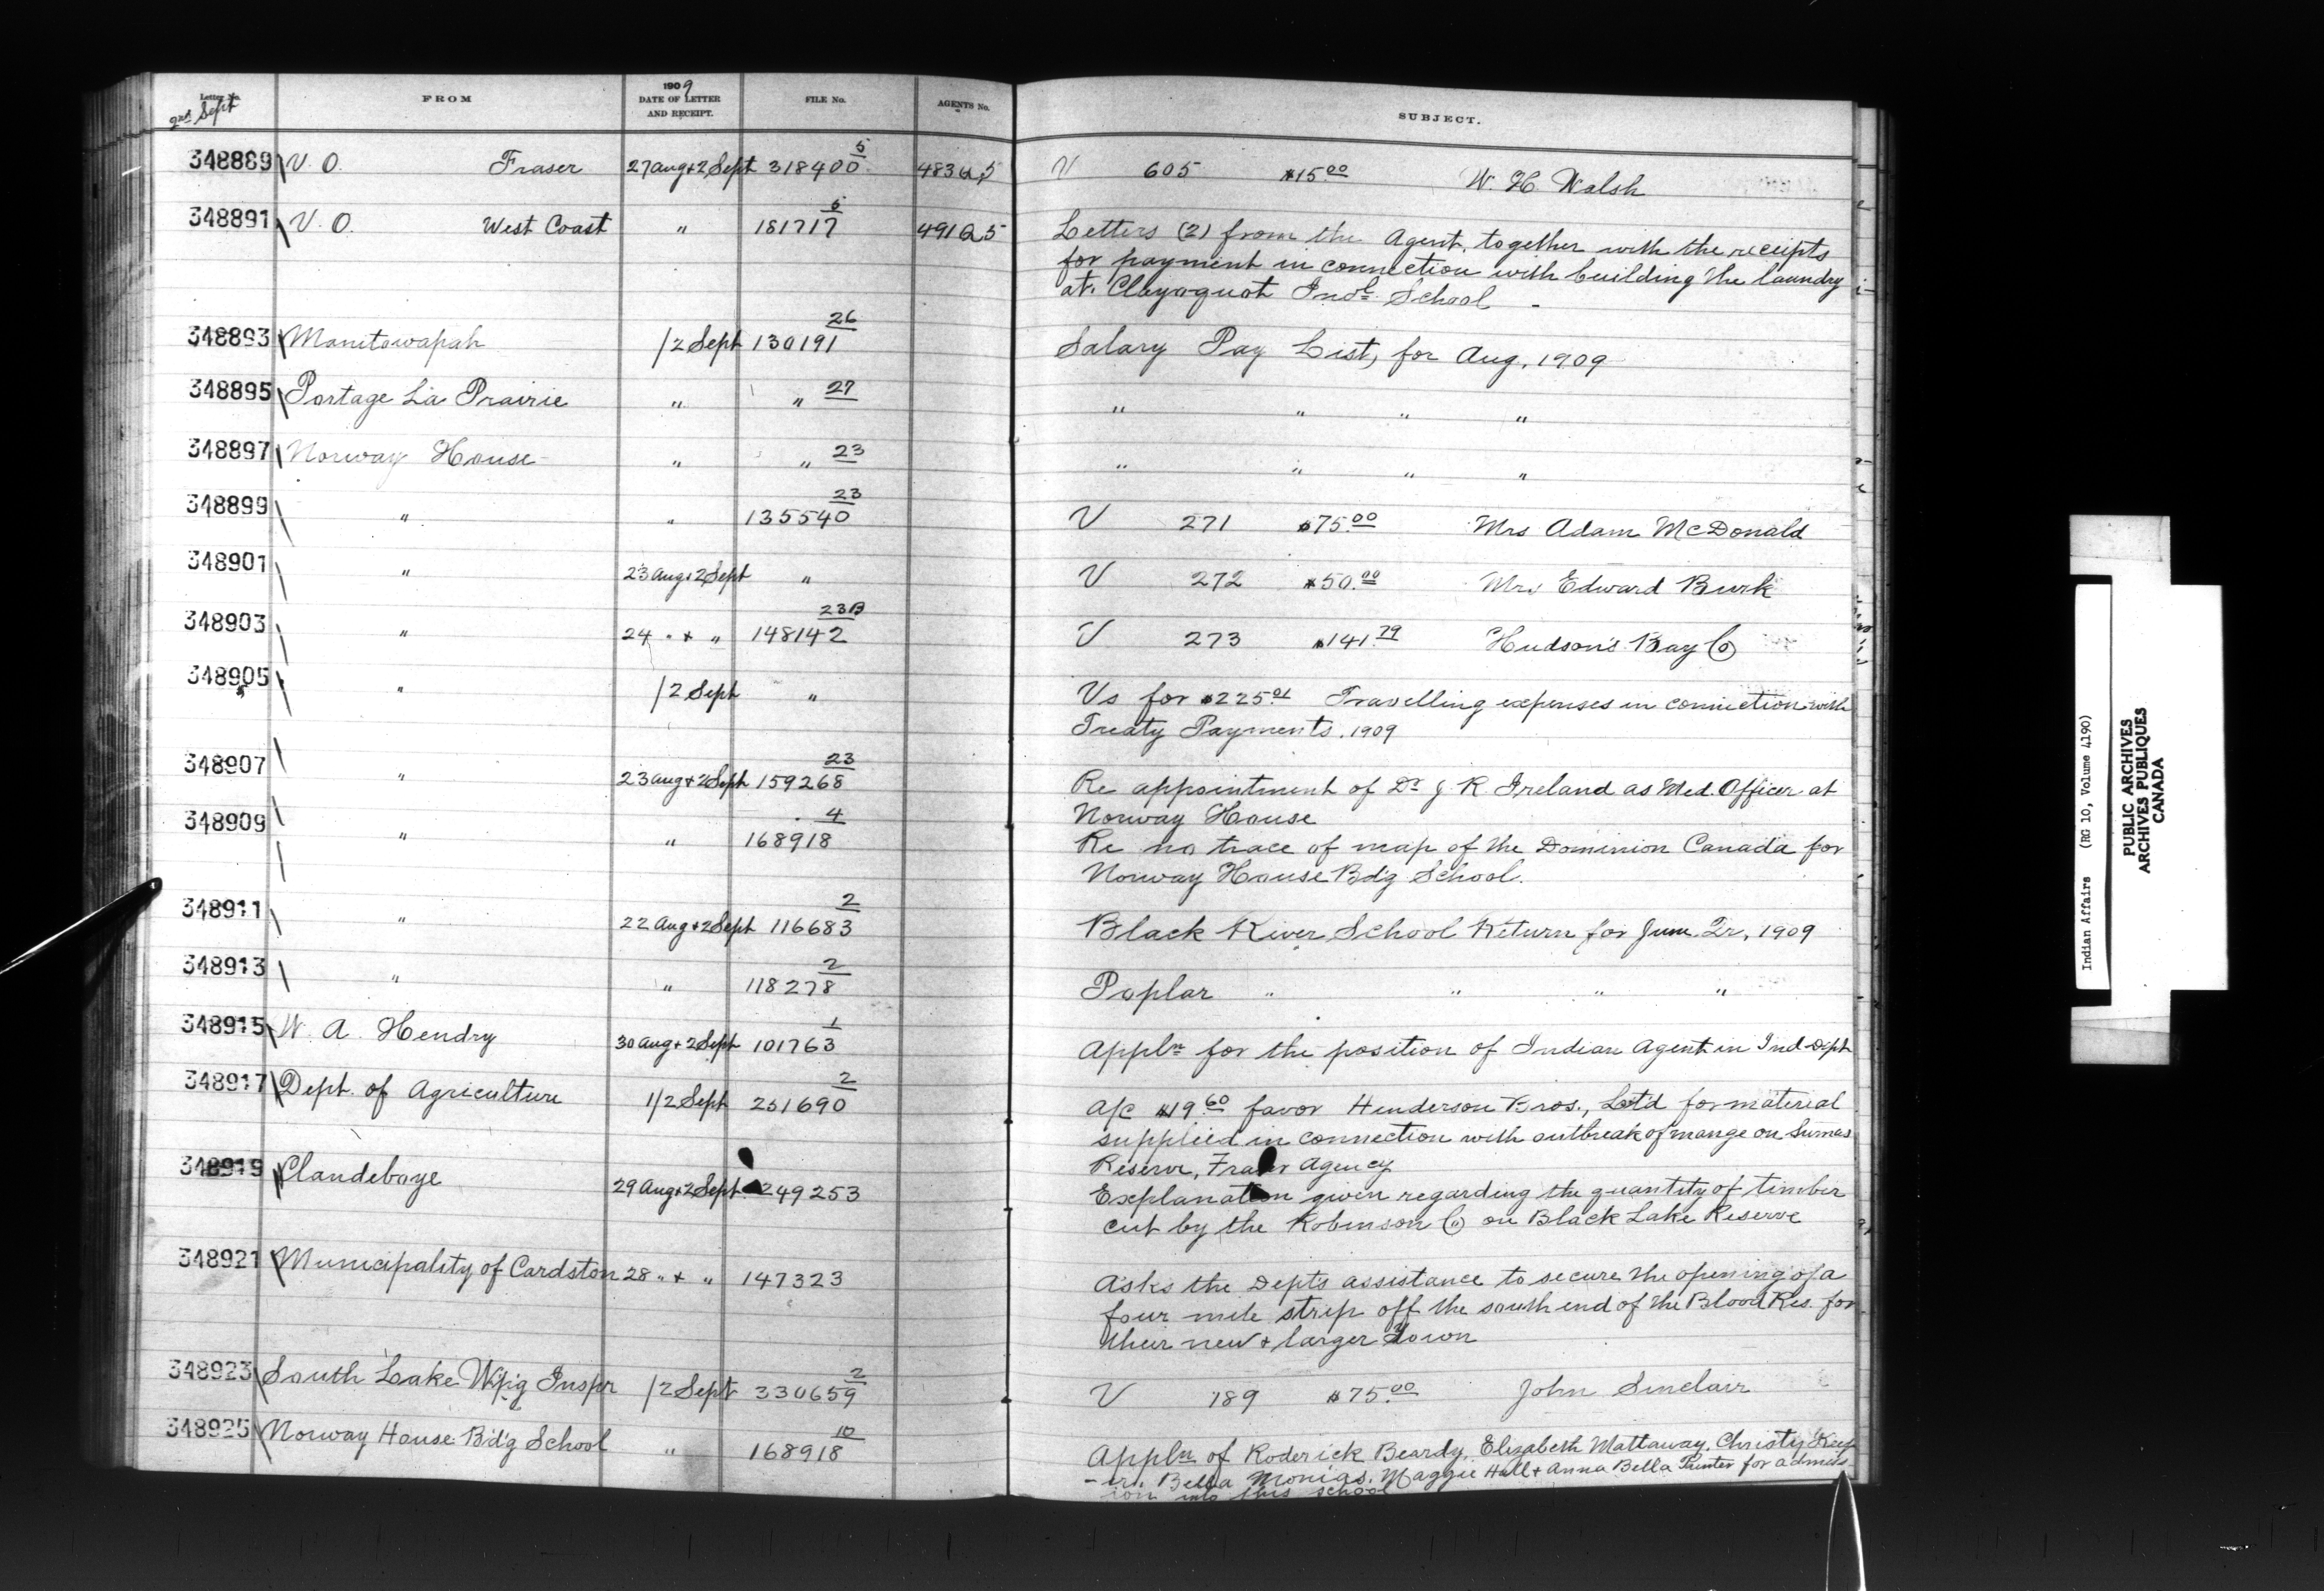 Letter No. FROM 1909 DATE OF LETTER AND RECEIPT. FILE No. AGENTS No. SUBJECT.
2nd Sept
348889 V. O. Fraser 27 Aug + 2 Sept 318400 5 V 605 $15.00 W. H. Walsh
348891 V. O. West Coast " 181717 Letters (2) from the Agent, together with the receipts
for payment in connection with building the laundry
at Clayoquot Indl. School
348893 Manitowapah 1/2 Sept 130191 26 Salary Pay List, for Aug, 1909
348895 Portage La Prairie " " 27 " " " "
348897 Norway House " " 23 " " " "
348899 " " 135540 23 V 271 $75.00 Mrs Adam McDonald
348901 " 23 Aug + 2 Sept " V 272 $50.00 Mrs Edward Burk
348903 " 24 " + " 148142 23B V 273 $141.79 Hudson's Bay Co
348905 " 1/2 Sept " Vs for $225.01 Travelling expenses in connection with
Treaty Payments, 1909
348907 " 23 Aug + 2 Sept 159268 23 Re appointment of Dr J. R. Ireland as Med. Officer at
Norway House
348909 " " 168918 4 Re no trace of map of the Dominion Canada for
Norway House Bdg School.
348911 " 22 Aug + 2 Sept 116683 2 Black River School Return for June Qr, 1909
348913 " " 118278 2 Poplar " " " "
348915 W. A. Hendry 30 Aug + 2 Sept 101763 1 Appln for the position of Indian Agent in Ind Dept
348917 Dept. of Agriculture 1/2 Sept 251690 2 a/c $19.60 favor Henderson Bros., Ltd for material
supplied in connection with outbreak of mange on Sumas
Reserve, Fraser Agency
348919 Clandeboye 29 Aug + 2 Sept 249253 Explanation given regarding the quantity of timber
cut by the Robinson Co on Black Lake Reserve
348921 Municipality of Cardston 28 " + " 147323 Asks the Depts assistance to secure the opening of a
four mile strip off the south end of the Blood Res. for
their new + larger Town
348923 South Lake Wpg Inspr 1/2 Sept 330659 2 V 189 $75.00 John Sinclair
348925 Norway House Bdg School " 168918 10 Appln of Roderick Beardy, Elizabeth Mattaway, Christy
Bella Monias, Maggie Hall + Anna Bella for admiss
ion into this school
Indian Affairs (RG 10, Volume 4190)
PUBLIC ARCHIVES
ARCHIVES PUBLIQUES
CANADA